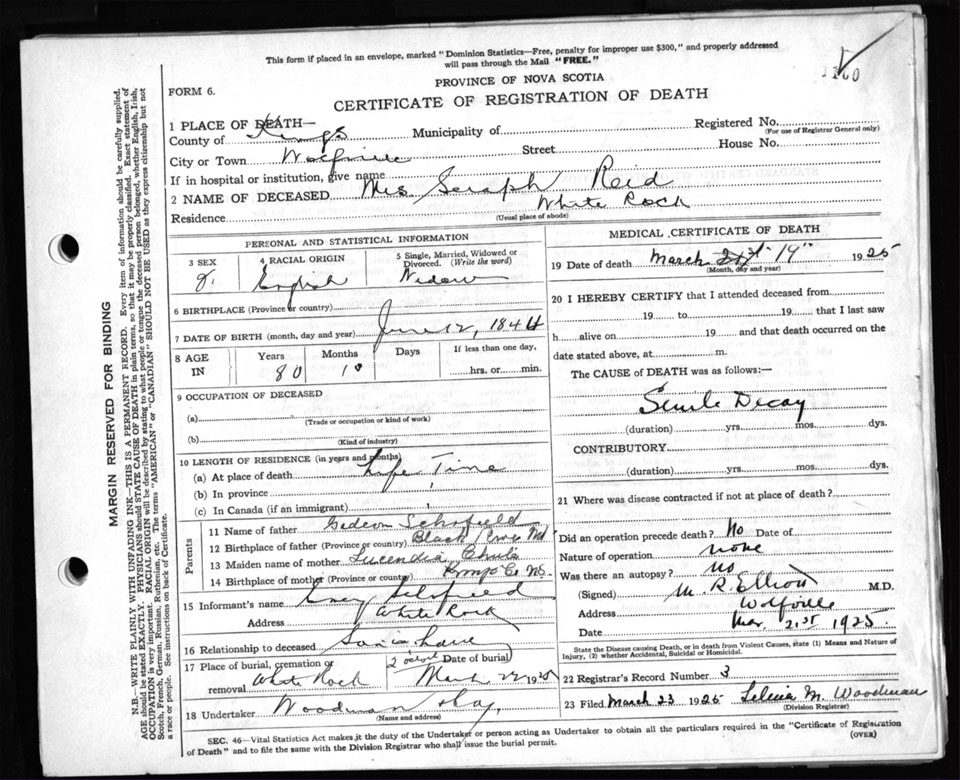 This form if placed in an envelope, marked "Dominion Statistics—Free, penalty for improper use $300," and properly addressed
will pass through the Mail "FREE."
1160
PROVINCE OF NOVA SCOTIA
FORM 6.
CERTIFICATE OF REGISTRATION OF DEATH
1 PLACE OF DEATH—
County of Kings Municipality of Registered No.
(For use of Registrar General only)
City or Town Wolfville Street House No.
If in hospital or institution, give name
2 NAME OF DECEASED Mrs Seraph Reid
Residence White Rock
(Usual place of abode)
PERSONAL AND STATISTICAL INFORMATION
3 SEX
4 RACIAL ORIGIN
English
5 Single, Married, Widowed or
Divorced. (Write the word)
Widow
6 BIRTHPLACE (Province or country)
7 DATE OF BIRTH (month, day and year) June 12, 1844
8 AGE
IN
Years
80
Months
10
Days
If less than one day,
hrs. or min.
9 OCCUPATION OF DECEASED
(a)
(Trade or occupation or kind of work)
(b)
(Kind of industry)
10 LENGTH OF RESIDENCE (in years and months)
(a) At place of death Life Time
(b) In province
(c) In Canada (if an immigrant)
Parents
11 Name of father Gideon Schofield
12 Birthplace of father (Province or country) Black
13 Maiden name of mother
14 Birthplace of mother (Province or country) Kings Co NS.
15 Informant's name Schofield
Address White Rock
16 Relationship to deceased Son in law
17 Place of burial, cremation or
removal White Rock
Date of burial
March 22 1925
18 Undertaker Woodman
(Name and address)
MEDICAL CERTIFICATE OF DEATH
19 Date of death March 21st 19" 1925
(Month, day and year)
20 I HEREBY CERTIFY that I attended deceased from
19 to 19 that I last saw
h alive on 19 and that death occurred on the
date stated above, at m.
The CAUSE of DEATH was as follows:
Senile Decay
(duration) yrs. mos. dys.
CONTRIBUTORY
(duration) yrs. mos. dys.
21 Where was disease contracted if not at place of death?
Did an operation precede death? No Date of
Nature of operation none
Was there an autopsy? no
(Signed) M. R. Elliott M.D.
Address Wolfville
Date Mar. 21st 1925
State the Disease causing Death, or in death from Violent Causes, state (1) Means and Nature of
Injury, (2) whether Accidental, Suicidal or Homicidal.
22 Registrar's Record Number 3
23 Filed March 23 1925 M. Woodman
(Division Registrar)
SEC. 46—Vital Statistics Act makes it the duty of the Undertaker or person acting as Undertaker to obtain all the particulars required in the "Certificate of Registration
of Death" and to file the same with the Division Registrar who shall issue the burial permit.
(OVER)
MARGIN RESERVED FOR BINDING
N.B.—WRITE PLAINLY WITH UNFADING INK—THIS IS A PERMANENT RECORD. Every item of information should be carefully supplied.
AGE should be stated EXACTLY. PHYSICIANS should STATE CAUSE OF DEATH in plain terms, so that it may be properly classified. Exact statement of
OCCUPATION is very important. RACIAL ORIGIN will be described by stating to what people or tongue the deceased person belonged, whether English, Irish,
Scotch, French, German, Russian, Ruthenian, etc. The terms "AMERICAN" or "CANADIAN" SHOULD NOT BE USED as they express citizenship but not
a race or people. See instructions on back of Certificate.